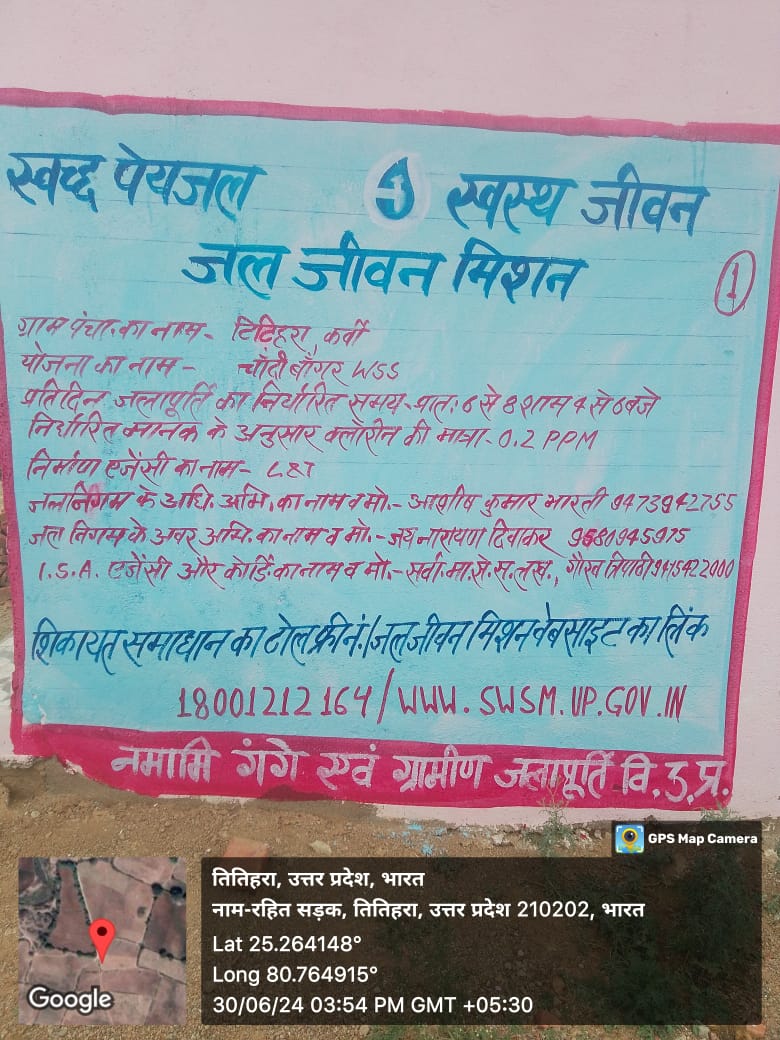 स्वच्छ पेयजल स्वस्थ जीवन
जल जीवन मिशन
1
ग्राम पंचा. का नाम- टिटिहरा, कर्वी
योजना का नाम - चाँदी बाँगर WSS
प्रतिदिन जलापूर्ति का निर्धारित समय-प्रात: 6 से 8 शाम 4 से 6 बजे
निर्धारित मानक के अनुसार क्लोरीन की मात्रा-0.2 PPM
निर्माण एजेंसी का नाम- L&T
जलनिगम के अधि. अभि. का नाम व मो.- आशीष कुमार भारती 9473942755
जल निगम के अवर अभि. का नाम व मो.-जय नारायण दिवाकर
I.S.A. एजेंसी और कोर्डि. का नाम व मो.-सर्वो.मा.से.स.लख., गौरव त्रिपाठी 9415422000
शिकायत समाधान का टोल फ्री नं./जल जीवन मिशन वेबसाइट का लिंक
18001212164/WWW.SWSM.UP.GOV.IN
नमामि गंगे एवं ग्रामीण जलापूर्ति वि.उ.प्र.
GPS Map Camera
तितिहरा, उत्तर प्रदेश, भारत
नाम-रहित सड़क, तितिहरा, उत्तर प्रदेश 210202, भारत
Lat 25.264148°
Long 80.764915°
30/06/24 03:54 PM GMT +05:30
Google